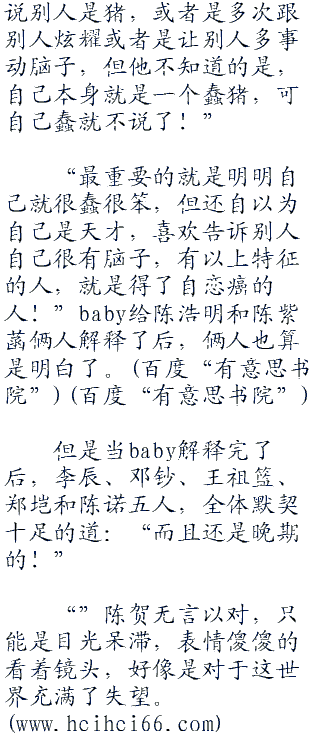 说别人是猪，或者是多次跟
别人炫耀或者是让别人多事
动脑子，但他不知道的是，
自己本身就是一个蠢猪，可
自己蠢就不说了！”
“最重要的就是明明自
己就很蠢很笨，但还自以为
自己是天才，喜欢告诉别人
自己很有脑子，有以上特征
的人，就是得了自恋癌的
人！”baby给陈浩明和陈紫
菡俩人解释了后，俩人也算
是明白了。(百度“有意思书
院”)(百度“有意思书院”)
但是当baby解释完了
后，李辰、邓钞、王祖篮、
郑垲和陈诺五人，全体默契
十足的道：“而且还是晚期
的！”
“”陈贺无言以对，只
能是目光呆滞，表情傻傻的
看着镜头，好像是对于这世
界充满了失望。
(www.hcihci66.com)